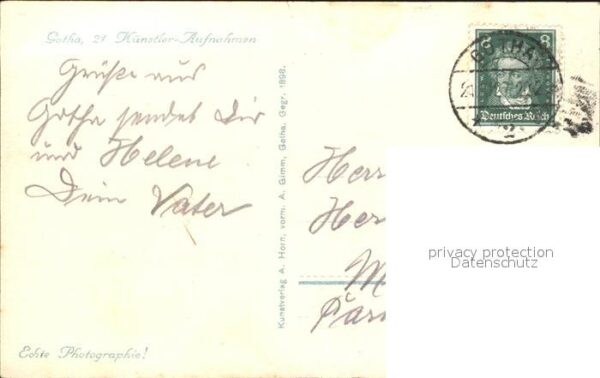 Gotha, 21 Künstler-Aufnahmen
Grüße aus
Gotha sendet Dir
und Helene
Dein Vater
Echte Photographie!
Kunstverlag A. Horn, vorm. A. Gimm, Gotha. Gegr. 1898.
8
Deutsches Reich
GOTHA
2
Herr
Her
M
privacy protection
Datenschutz